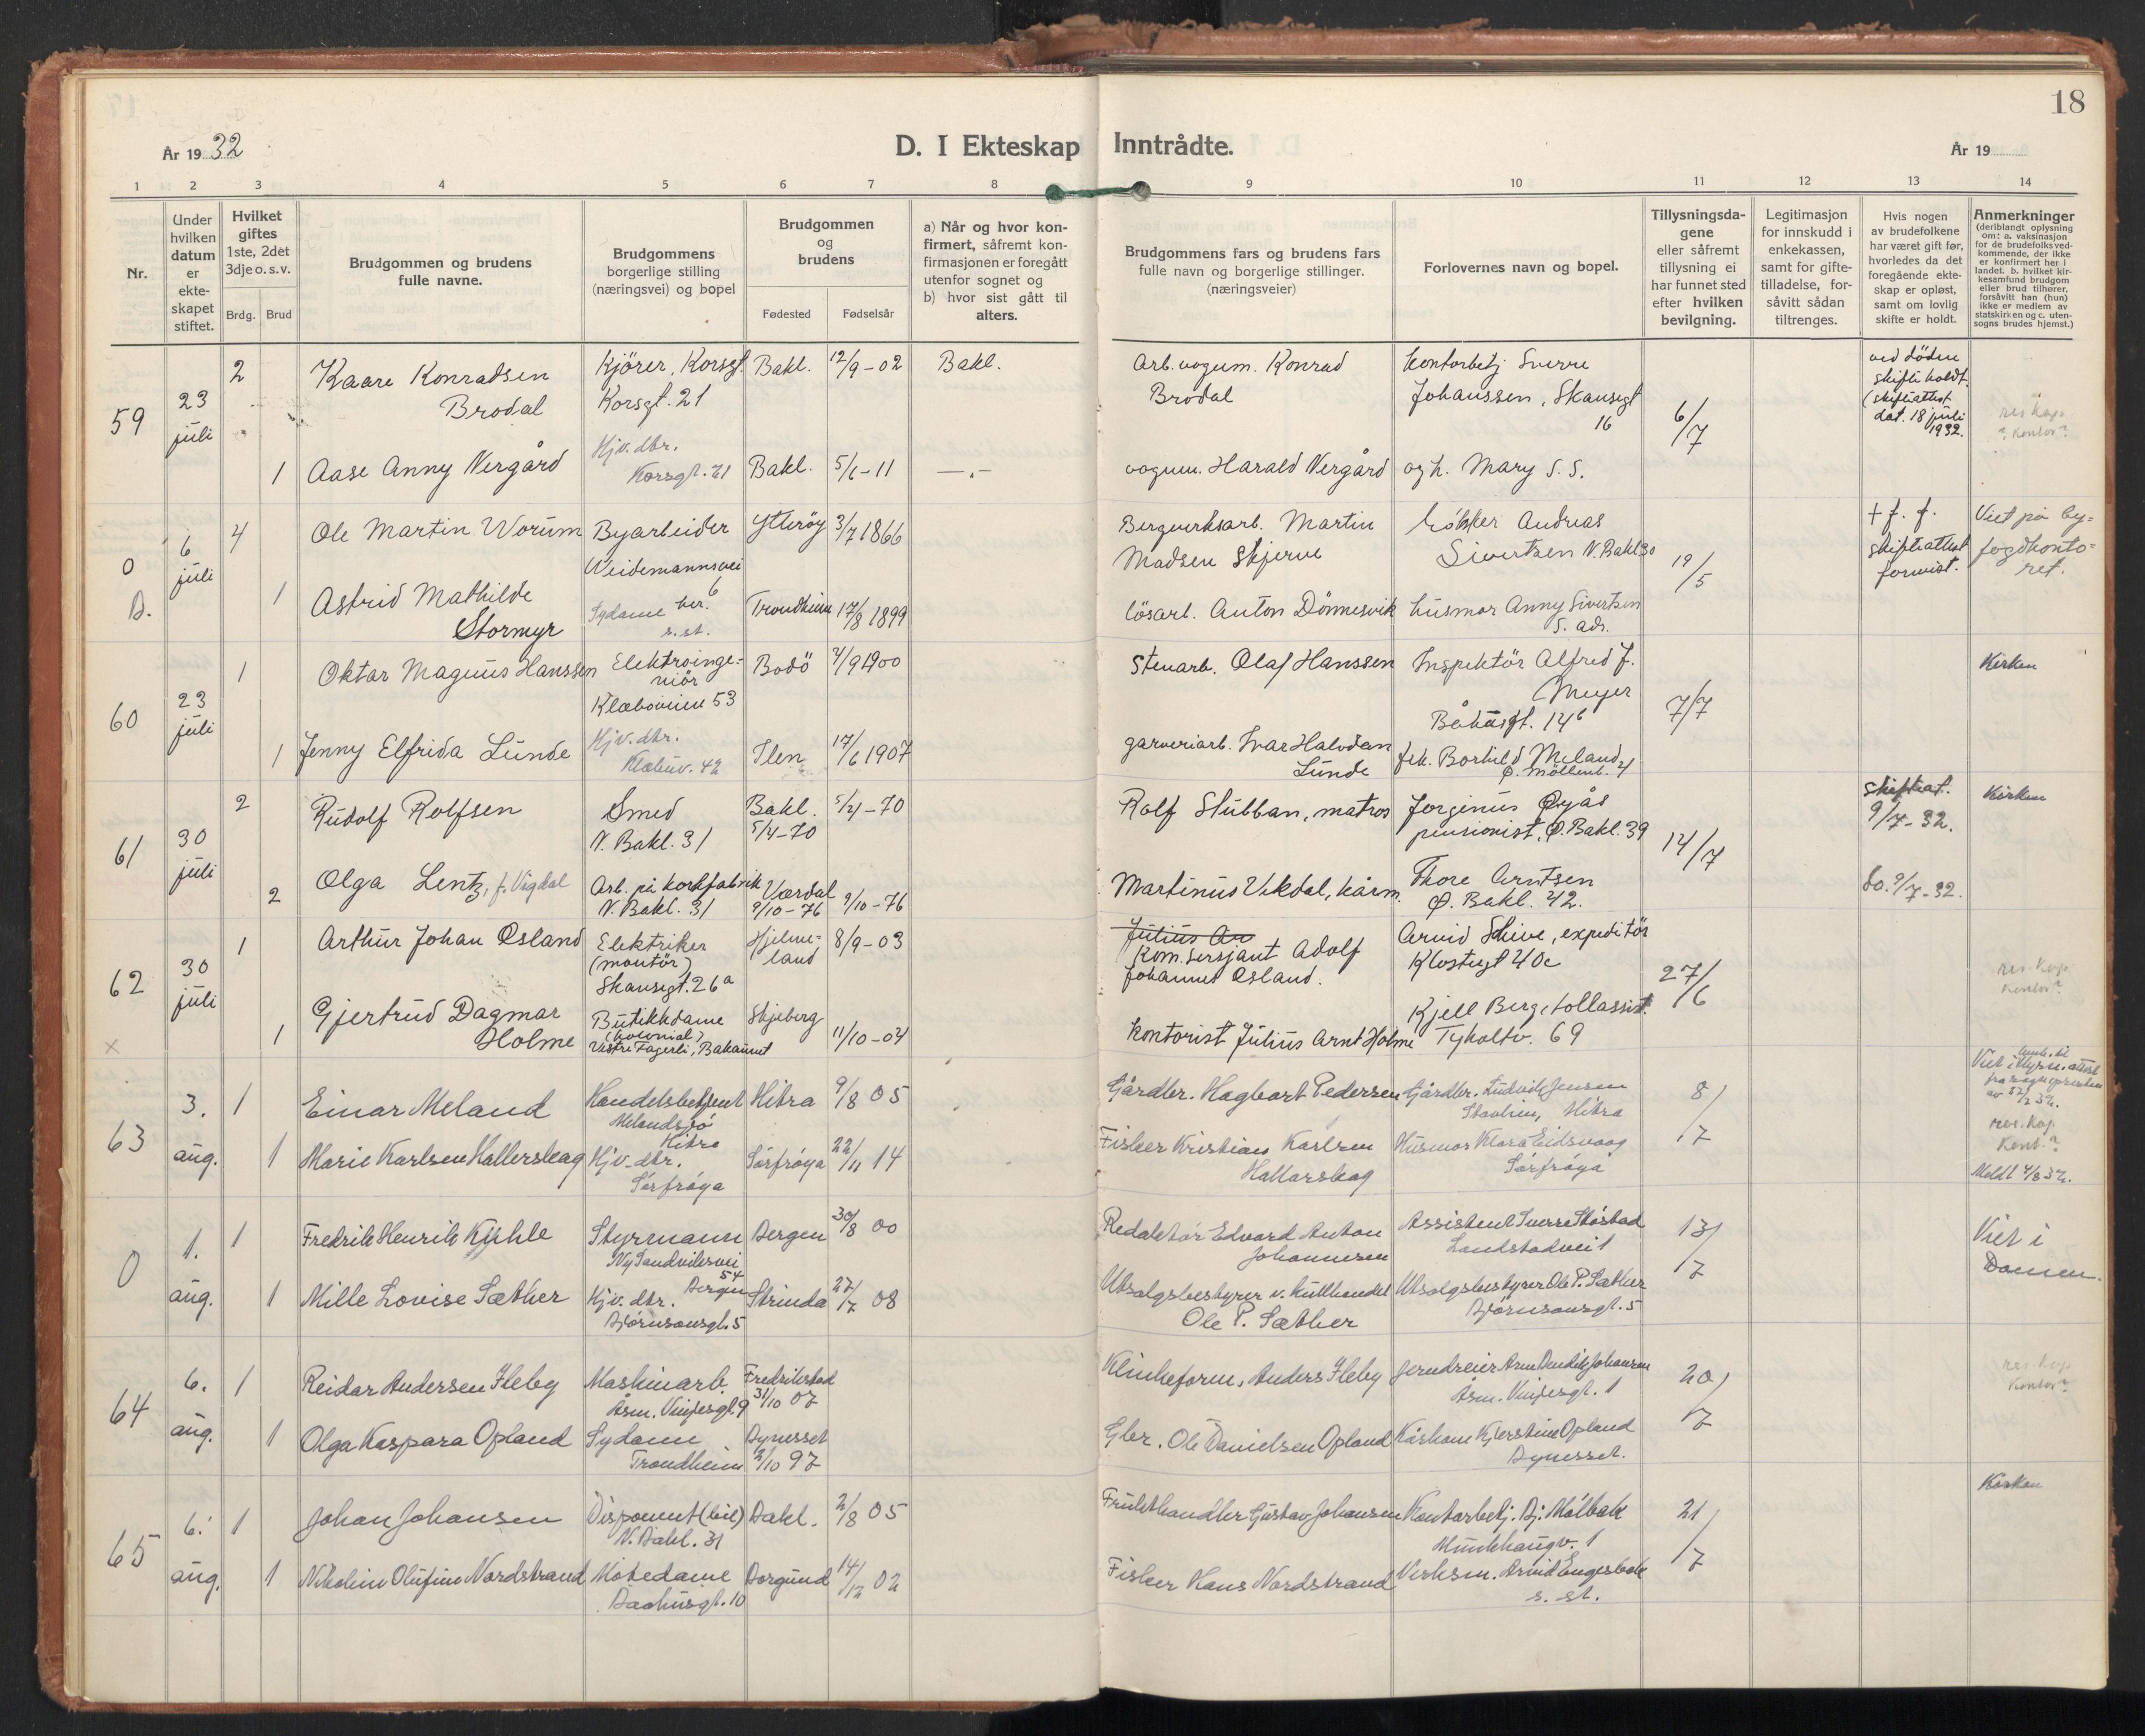 18
År 19 32
D. I Ekteskap Inntrådte.
År 19
1 2 3 4 5 6 7 8 9 10 11 12 13 14
Nr.
Under hvilken datum er ekteskapet stiftet.
Hvilket giftes 1ste, 2det 3dje o. s. v.
Brdg. Brud
Brudgommen og brudens fulle navne.
Brudgommens borgerlige stilling (næringsvei) og bopel
Brudgommen og brudens
Fødested Fødselsår
a) Når og hvor konfirmert, såfremt konfirmasjonen er foregått utenfor sognet og b) hvor sist gått til alters.
Brudgommens fars og brudens fars fulle navn og borgerlige stillinger. (næringsveier)
Forlovernes navn og bopel.
Tillysningsdagene eller såfremt tillysning ei har funnet sted efter hvilken bevilgning.
Legitimasjon for innskudd i enkekassen, samt for giftetilladelse, forsåvitt sådan tiltrenges.
Hvis nogen av brudefolkene har været gift før, hvorledes da det foregående ekteskap er opløst, samt om lovlig skifte er holdt.
Anmerkninger (deriblandt oplysning om: a. vaksinasjon for de brudefolks vedkommende, der ikke er konfirmert her i landet. b. hvilket kirkesamfund brudgom eller brud tilhører, forsåvitt han (hun) ikke er medlem av statskirken og c. utensogns brudes hjemst.)
59 23 juli 2 Kaare Konradsen Brodal Kjörer, Korsgt. Korsgt. 21 Bakl. 12/9-02 Bakl. Arb. vognm. Konrad Brodal Kontorbetj Sverre Johanssen, Skansegt 16 6/7 ved döden skifte holdt. (skifteattest dat. 18 juli 1932. res. kap. kontor?
1 Aase Anny Vergård Hjv. dtr. Korsgt. 21 Bakl. 5/6-11 —„— vognm. Harald Vergård og h. Mary S. S.
0 D. 6 juli 4 Ole Martin Worum Byarbeider Weidemannsvei 6 Ytteröy 3/7 1866 Bergverksarb. Martin Madsen Skjerve Andreas Sivertsen N. Bakl 30 19/5 + f. f. skifteattest forevist. Viet på byfogdkontoret.
1 Astrid Mathilde Stormyr Sydame her. s. st. Trondheim 17/8 1899 lösarb. Anton Dönnesvik husmor Anny Sivertsen S. ads.
60 23 juli 1 Oktar Magnus Hanssen Elektroingeniör Klæboveien 53 Bodö 4/9 1900 Stenarb. Olaf Hanssen Inspektör Alfred J. Meyer 14 b 7/7 Kirken
1 Jenny Elfrida Lunde Hjv. dtr. Klæbuv. 42 Ilen 17/6 1907 garveriarb. Ivar Halvdan Lunde frk. Borhild Meland, Ø. Möllenb. 4
61 30 juli 2 Rudolf Rolfsen Smed N. Bakl. 31 Bakl. 5/4-70 5/4-70 Rolf Stubban, matros Jorginus Øyås pensionist, Ø. Bakl. 39 14/7 skifteat. 9/7-32. Kirken
2 Olga Lentz, f. Vigdal Arb. på korkfabrik N. Bakl. 31 Værdal 9/10-76 9/10-76 Martinus Vikdal, kårm. Thore Arntsen Ø. Bakl. 42. do. 9/7-32.
62 30 juli 1 Arthur Johan Osland Elektriker (montör) Skansegt. 26 a Hjelmeland 8/9-03 Julius Ar Kom. sersjant Adolf Johannes Osland. Arvid Skive, expeditör Klostergt 40c 27/6 res. kap. kontor?
× 1 Gjertrud Dagmar Holme Butikkdame (kolonial) Vestre Fagerli, Bakaunet Skjeberg 11/10-04 Kontorist Julius Arnt Holme Kjell Berg, tollassist. Tyholtv. 69
63 3. aug. 1 Einar Meland Handelsbetjent Melandsjö Hitra Hitra 9/8 05 Gårdbr. Hagbart Pedersen Gårdbr. Ludvik Jensen Hitra 8/7 res. kap. Kont.? Meldt 4/8 32.
1 Marie Karlsen Hallerskag Hjv. dtr. Sörfröya Sörfröya 22/11 14 Fisker Kristian Karlsen Hallarskag Husmor Klara Eidsvaag Sörfröya
0 1. aug. 1 Fredrik Henrik Kyhle Styrmann Ny Sandviksvei 54 Bergen Bergen 30/8 00 Redaktör Edvard Anton Johannesen Assistent Sverre Skarstad Landstadvei 1 13/7 Viet i Domen.
1 Mille Lovise Sæther Hjv. dtr. Björnsonsgt. 5 Strinda 27/7 08 Utsalgsbestyrer v. kullhandel Ole P. Sæther Utsalgsbestyrer Ole P. Sæther Björnsonsgt. 5
64 6. aug. 1 Reidar Andersen Heleby Maskinarb. Åsm. Vinjesgt. 9 Fredrikstad 31/10 07 Anders Heleby Jerndreier Arne Johansen Åsm. Vinjesgt. 1 20/7 res. kap. kontor?
1 Olga Kaspara Opland Sydame Trondheim Bynesset 2/10 97 Gbr. Ole Danielsen Opland Kårkone Kjerstine Opland Bynesset.
65 6. aug. 1 Johan Johansen Disponent (bil) N. Bakl. 31 Bakl. 2/8 05 Frukthandler Gustav Johansen Kontorbetj. Bj. Mölbak Munkhaugv. 1 21/7 Kirken
1 Nikoline Olufine Nordstrand Motedame Bakhusgt. 10 Borgund 14/12 02 Fisker Hans Nordstrand Verksm. Arvid Engesbak s. st.